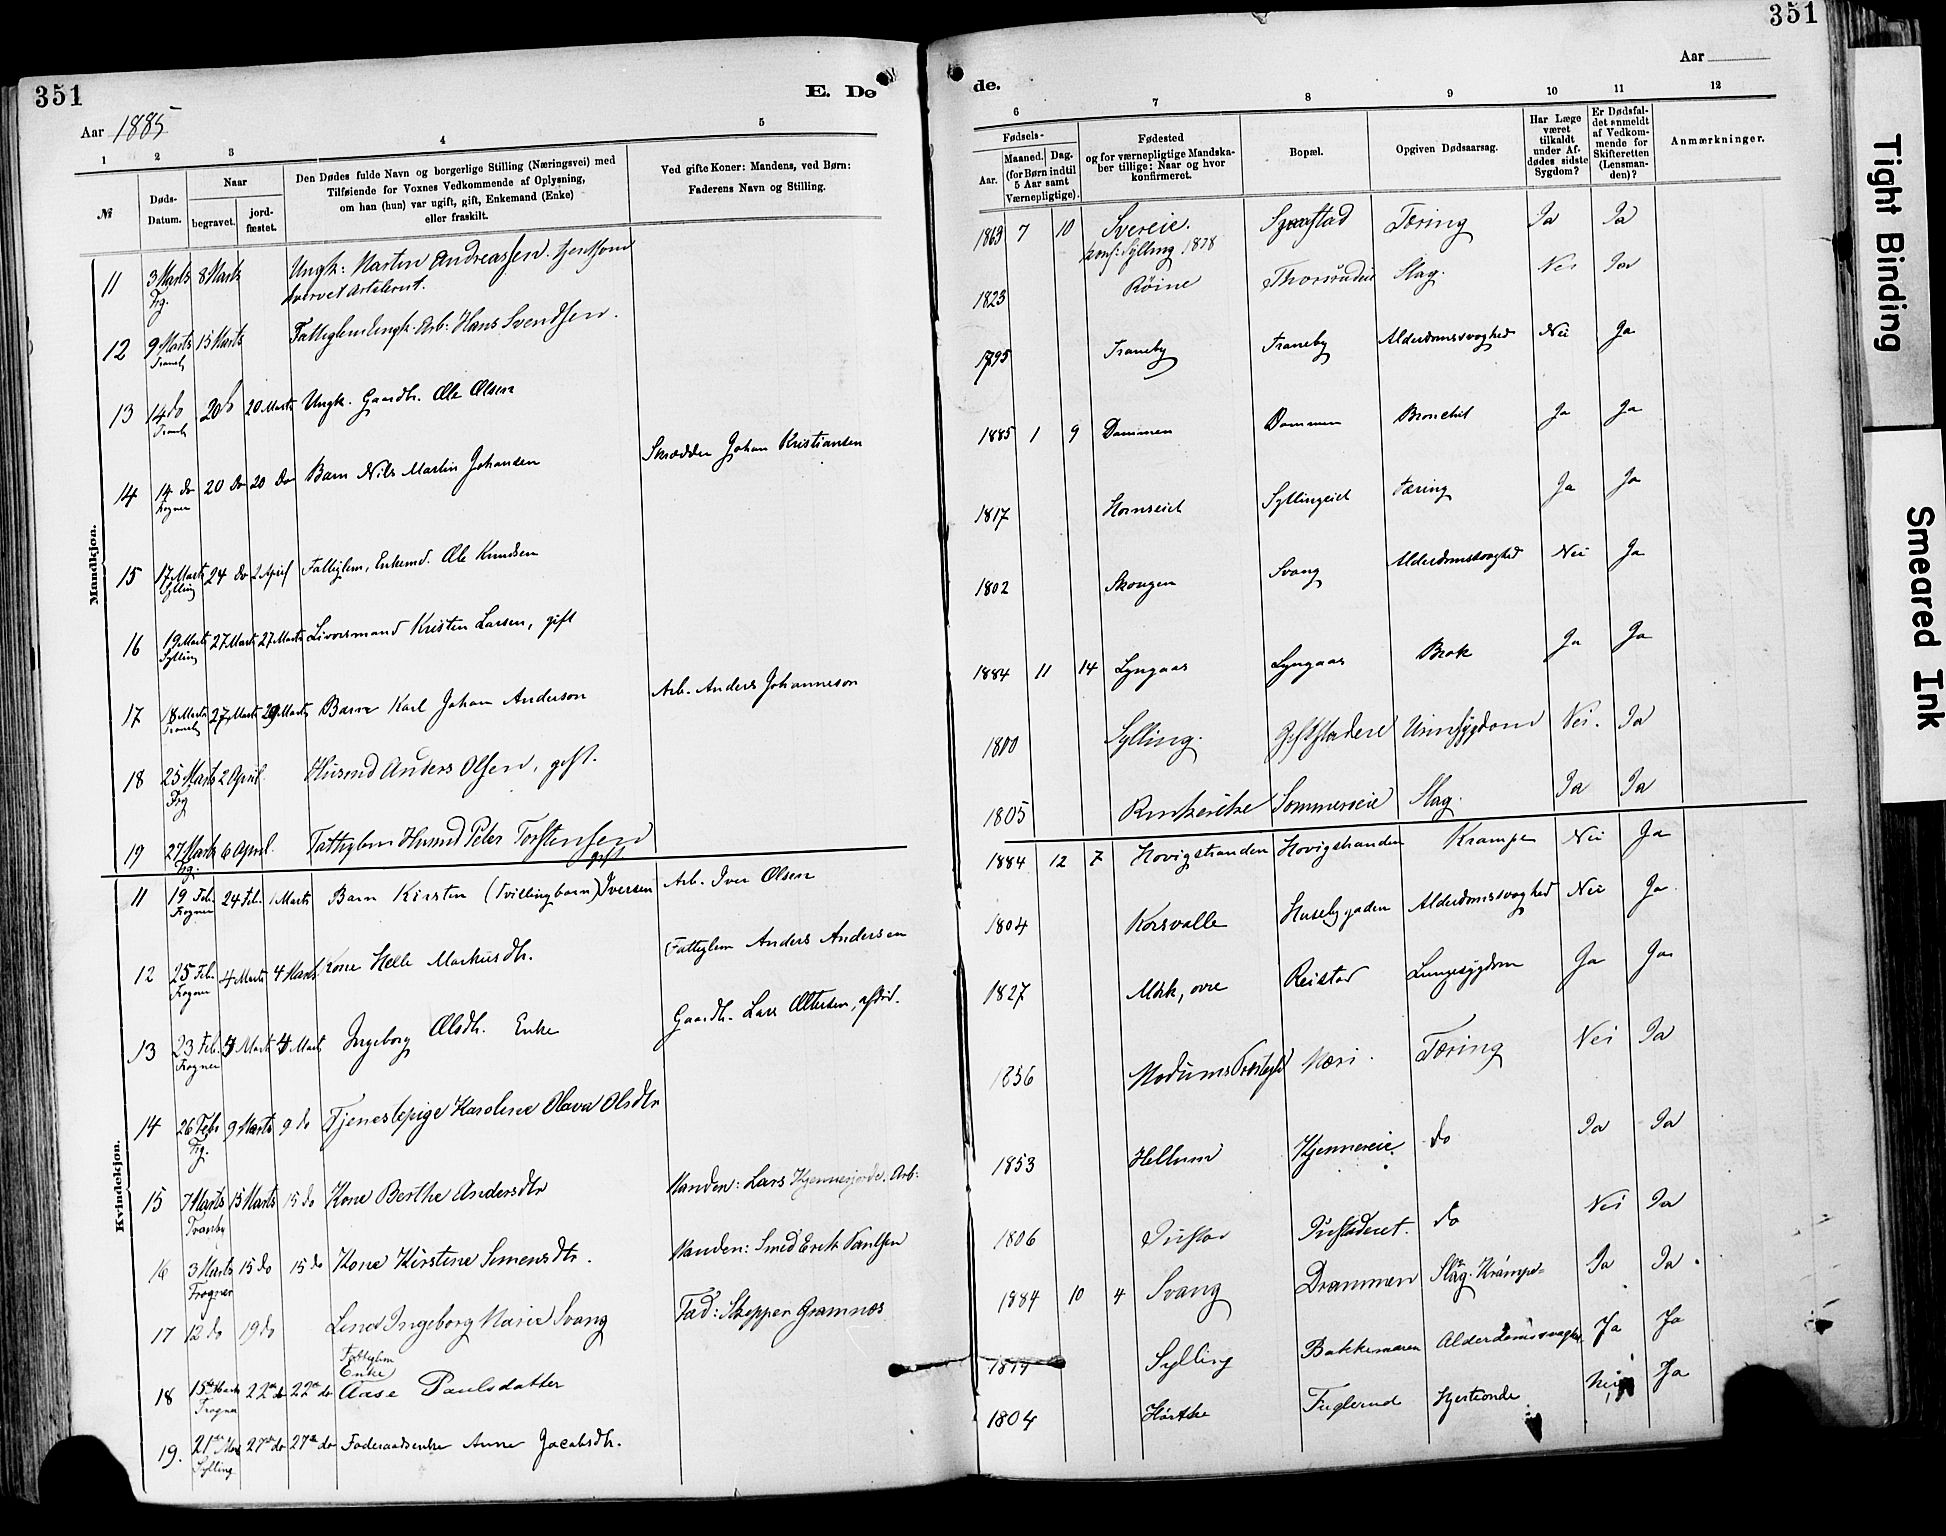 351
Aar 1885
E. Dø
1 2 3 4 5
№
Døds-
Datum.
Naar
begravet.
jord-
fæstet.
Den Dødes fulde Navn og borgerlige Stilling (Næringsvei) med
Tilføiende for Voxnes Vedkommende af Oplysning,
om han (hun) var ugift, gift, Enkemand (Enke)
eller fraskilt.
Ved gifte Koner: Mandens, ved Børn:
Faderens Navn og Stilling.
Mandkjøn.
11 3 Marts 8 Marts Ungk: Martin Andreassen.
Frg.
12 9 Marts 15 Marts Fattiglem Ungk. Arb: Hans Svendsen.
13 14 do 20 do 20 Marts Ungk. Gaardbr. Ole Olsen
14 14 do 20 do 20 do Barn Nils Martin Johansen Skrædder Johan Kristiansen
Frogner
15 17 Marts 24 do 2 April Fattiglem, Enkemd. Ole Knudsen
Sylling
16 19 Marts 27 Marts 27 Marts Livørsmand Kristen Larsen, gift
Sylling
17 18 Marts 27 Marts 29 Marts Barn Karl Johan Anderson Arb. Anders Johanneson
18 25 Marts 2 April Husmd Anders Olsen, gift.
Frg
19 27 Marts 6 April. Fattiglem Husmd Peter Torstensen
gift
Frg.
Kvindekjøn.
11 19 Feb. 24 Feb. 1 Marts Barn Kirsten (Tvillingbarn) Iversen Arb. Iver Olsen
Frogner
12 25 Feb. 4 Marts 4 Marts Kone Helle Markusdtr. Fattiglem Anders Andersen
Frogner
13 23 Feb. 4 Marts 4 Marts Ingeborg Olsdtr. Enke Gaardbr. Lars Ottersen, afdød.
Frogner
14 26 Febr 9 Marts 9 do Tjenestepige Karoline Olava Olsdtr
Frg.
15 7 Marts 15 Marts 15 do Kone Berthe Andersdtr Manden: Lars Kjennerjorde. Arb:
Tranby
16 3 Marts 15 do 15 do Kone Kirstine Simensdtr. Manden: Smed Erik Paulsen
Frogner
17 12 do 19 do Lina Ingeborg Marie Svang Fad: Skipper Gramnæs
Fattiglem
Enke
18 15de Marts 22de do 22de do Aase Paulsdatter
Frogner
19. 21de Mar 27de do 27de do Føderaadsenke Anne Jacobsdtr.
Sylling
351
Aar
de.
6 7 8 9 10 11 12
Fødsels-
Aar.
Maaned. Dag.
(for Børn indtil
5 Aar samt
Værnepligtige).
Fødested
og for værnepligtige Mandska-
ber tillige: Naar og hvor
konfirmeret.
Bopæl.
Opgiven Dødsaarsag.
Har Læge
været
tilkaldt
under Af-
dødes sidste
Sygdom?
Er Dødsfal-
det anmeldt
af Vedkom-
mende for
Skifteretten
(Lensman-
den)?
Anmærkninger.
1863 7 10 Svereie. Tæring Ja Ja
konf: Sylling 1878
1823 Røine Thorsrudeie Slag. Nei Ja
1795 Traneby Traneby Alderdomssvaghed Nei Ja
1885 1 9 Dammen Dammen Bronchit Ja Ja
1817 Hornseiet Syllingeiet Tæring Ja Ja
1802 Skougen Svang Alderdomssvaghed Nei Ja
1884 11 14 Lyngaas Lyngaas Brok Ja Ja
1800 Sylling. Urinsygdom Nei. Ja
1805 Ringerike Sommerseie Slag. Ja Ja
1884 12 7 Hovigstranden Hovigstranden Krampe Nei Ja
1804 Korsvalle Husebygaden Alderdomssvaghed Nei Ja
1827 Mørk, øvre Reistad Lungesygdom Ja Ja
1856 Modums Præstegld Næri. Tæring Nei Ja
1853 Hellum Kjennereie. do Ja Ja
1806 do Nei Ja
1884 10 4 Svang Drammen Slag. Krampe Ja Ja.
Sylling Bakkemaren Alderdomssvaghed Ja Ja
1804 Hørtke Fuglerud Hjerteonde Nei Ja
Tight Binding
Smeared Ink